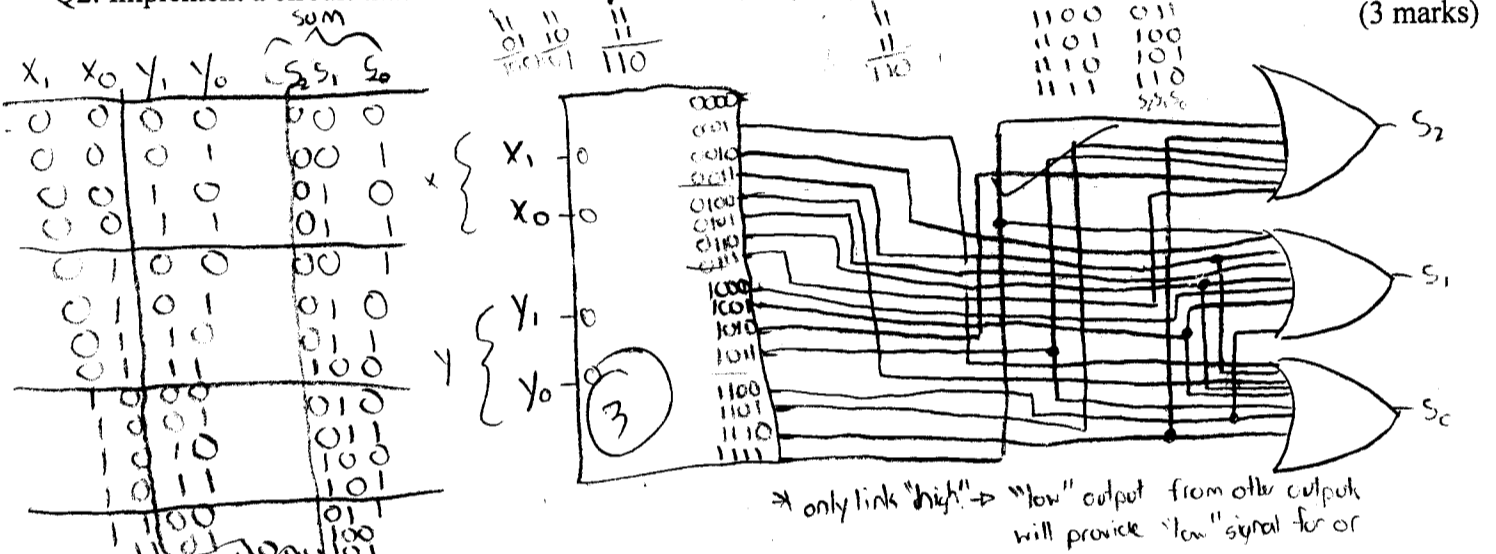 (3 marks)
sum
X₁ X₀ Y₁ Y₀ S₂ S₁ S₀
0 0 0 0 0 0 0
0 0 0 1 0 0 1
0 0 1 0 0 1 0
0 0 1 1 0 1 1
0 1 0 0 0 0 1
0 1 0 1 0 1 0
0 1 1 0 0 1 1
0 1 1 1 1 0 0
1 0 0 0 0 1 0
1 0 0 1 0 1 1
1 0 1 0 1 0 0
1 0 1 1 1 0 1
1 1 0 0 0 1 1
100
11
11
110
11
11
110
1100 011
1101 100
1110 101
1111 110
S₂S₁S₀
x
X₁
X₀
Y
Y₁
Y₀
3
0000
0001
0010
0011
0100
0101
0110
0111
1000
1001
1010
1011
1100
1101
1110
1111
S₂
S₁
S₀
* only link "high" → "low" output from other outputs
will provide "low" signal for or